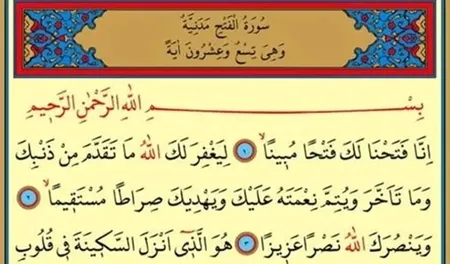 سُورَةُ الْفَتْحِ مَدَنِيَّةٌ
وَهِىَ تِسْعٌ وَعِشْرُونَ اٰيَةً
بِسْمِ اللّٰهِ الرَّحْمٰنِ الرَّح۪يمِ
اِنَّا فَتَحْنَا لَكَ فَتْحًا مُب۪ينًاۙ ﴿١﴾ لِيَغْفِرَ لَكَ اللّٰهُ مَا تَقَدَّمَ مِنْ ذَنْبِكَ
وَمَا تَاَخَّرَ وَيُتِمَّ نِعْمَتَهُ عَلَيْكَ وَيَهْدِيَكَ صِرَاطًا مُسْتَق۪يمًاۙ ﴿٢﴾
وَيَنْصُرَكَ اللّٰهُ نَصْرًا عَز۪يزًا ﴿٣﴾ هُوَ الَّذ۪ٓى اَنْزَلَ السَّك۪ينَةَ ف۪ى قُلُوبِ